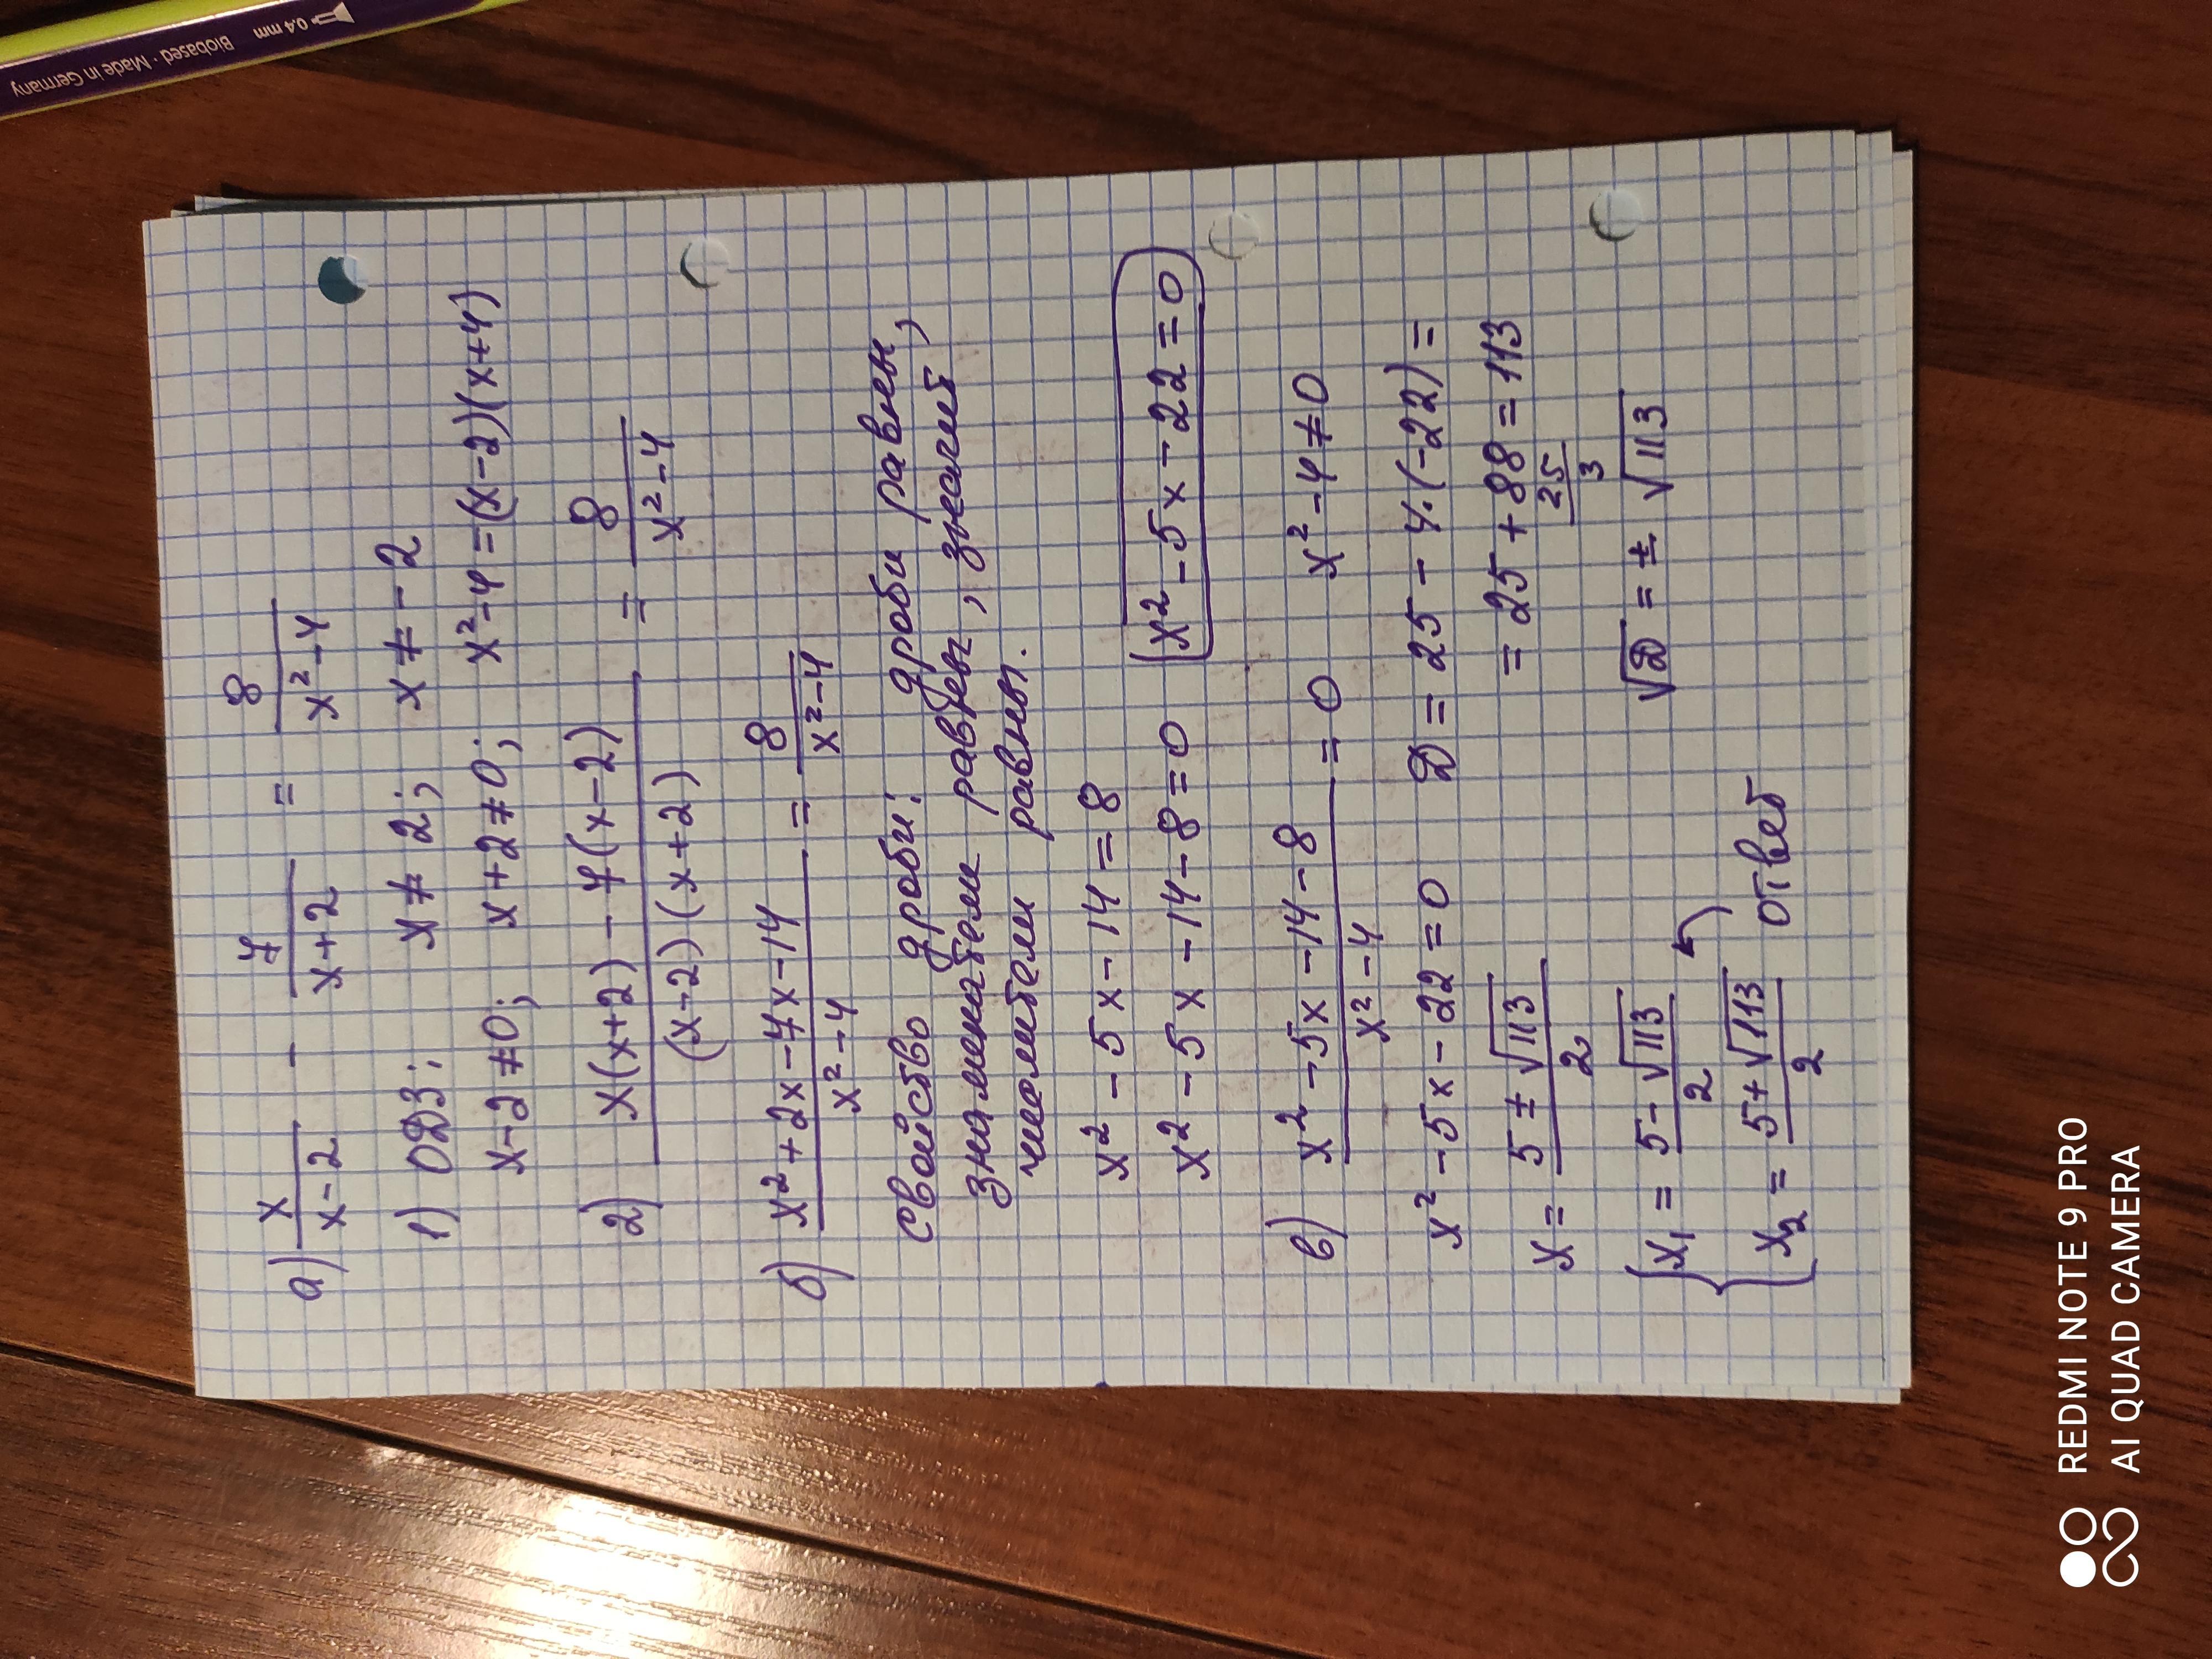 а) x/(x-2) - 7/(x+2) = 8/(x²-4)
1) ОДЗ: x ≠ 2; x ≠ -2
x-2≠0; x+2≠0; x²-4=(x-2)(x+4)
2) (x(x+2) - 7(x-2))/((x-2)(x+2)) = 8/(x²-4)
б) (x²+2x-7x-14)/(x²-4) = 8/(x²-4)
Свойство дроби: дроби равны,
знаменатели равны, значит
числители равны.
x²-5x-14=8
x²-5x-14-8=0 x²-5x-22=0
в) (x²-5x-14-8)/(x²-4) = 0 x²-4≠0
x²-5x-22=0 D = 25-4·(-22)=
x = (5±√113)/2 = 25+88=113
25
3
x₁ = (5-√113)/2 √D = ± √113
x₂ = (5+√113)/2 ответ
Biobased · Made in Germany 0.4 mm
REDMI NOTE 9 PRO
AI QUAD CAMERA